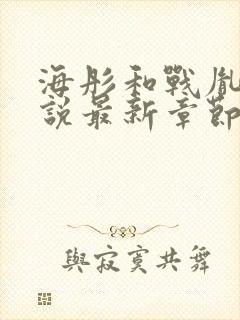 海彤和戰胤
說最新章節
與寂寞共舞